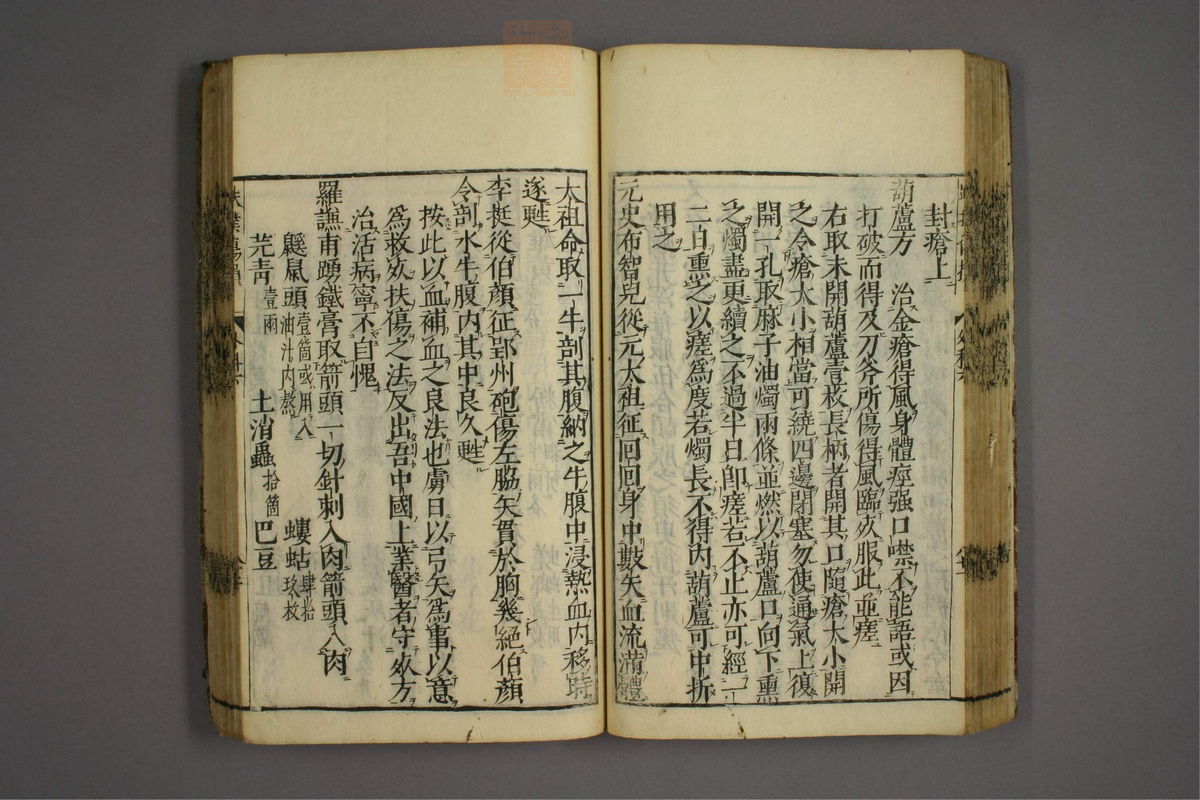 封瘡上
葫蘆方　治金瘡得風身體痙强口噤不能語或因
打破而得及刀斧所傷得風臨㰝服此並瘥
右取未開葫蘆壹枚長柄者開其口隨瘡大小開
之令瘡大小相當可繞四邊閉塞勿使通氣上復
開一孔取麻子油燭兩條並燃以葫蘆口向下熏
之燭盡更續之不過半日卽瘥若不止亦可經一
二日熏之以瘥爲度若燭長不得内葫蘆可中折
用之
元史布智兒從元太祖征回回身中數矢血流滿體
太祖命取一牛剖其腹納之牛腹中浸熱血内移時
遂甦
李挺從伯顏征郢州砲傷左脇矢貫於胸幾絕伯顏
令剖水牛腹内其中良久甦
按此以血補血之良法也虜日以弓矢爲事以意
爲救㰝扶傷之法反出吾中國上業醫者守㰝方
治活病寧不自愧
羅謙甫踴鐵膏取箭頭一切針刺入肉箭頭入肉
鼷鼠頭壹箇或用入油汁内熬　螻蛄肆拾玖枚
芫青壹兩　土消蟲拾箇　巴豆